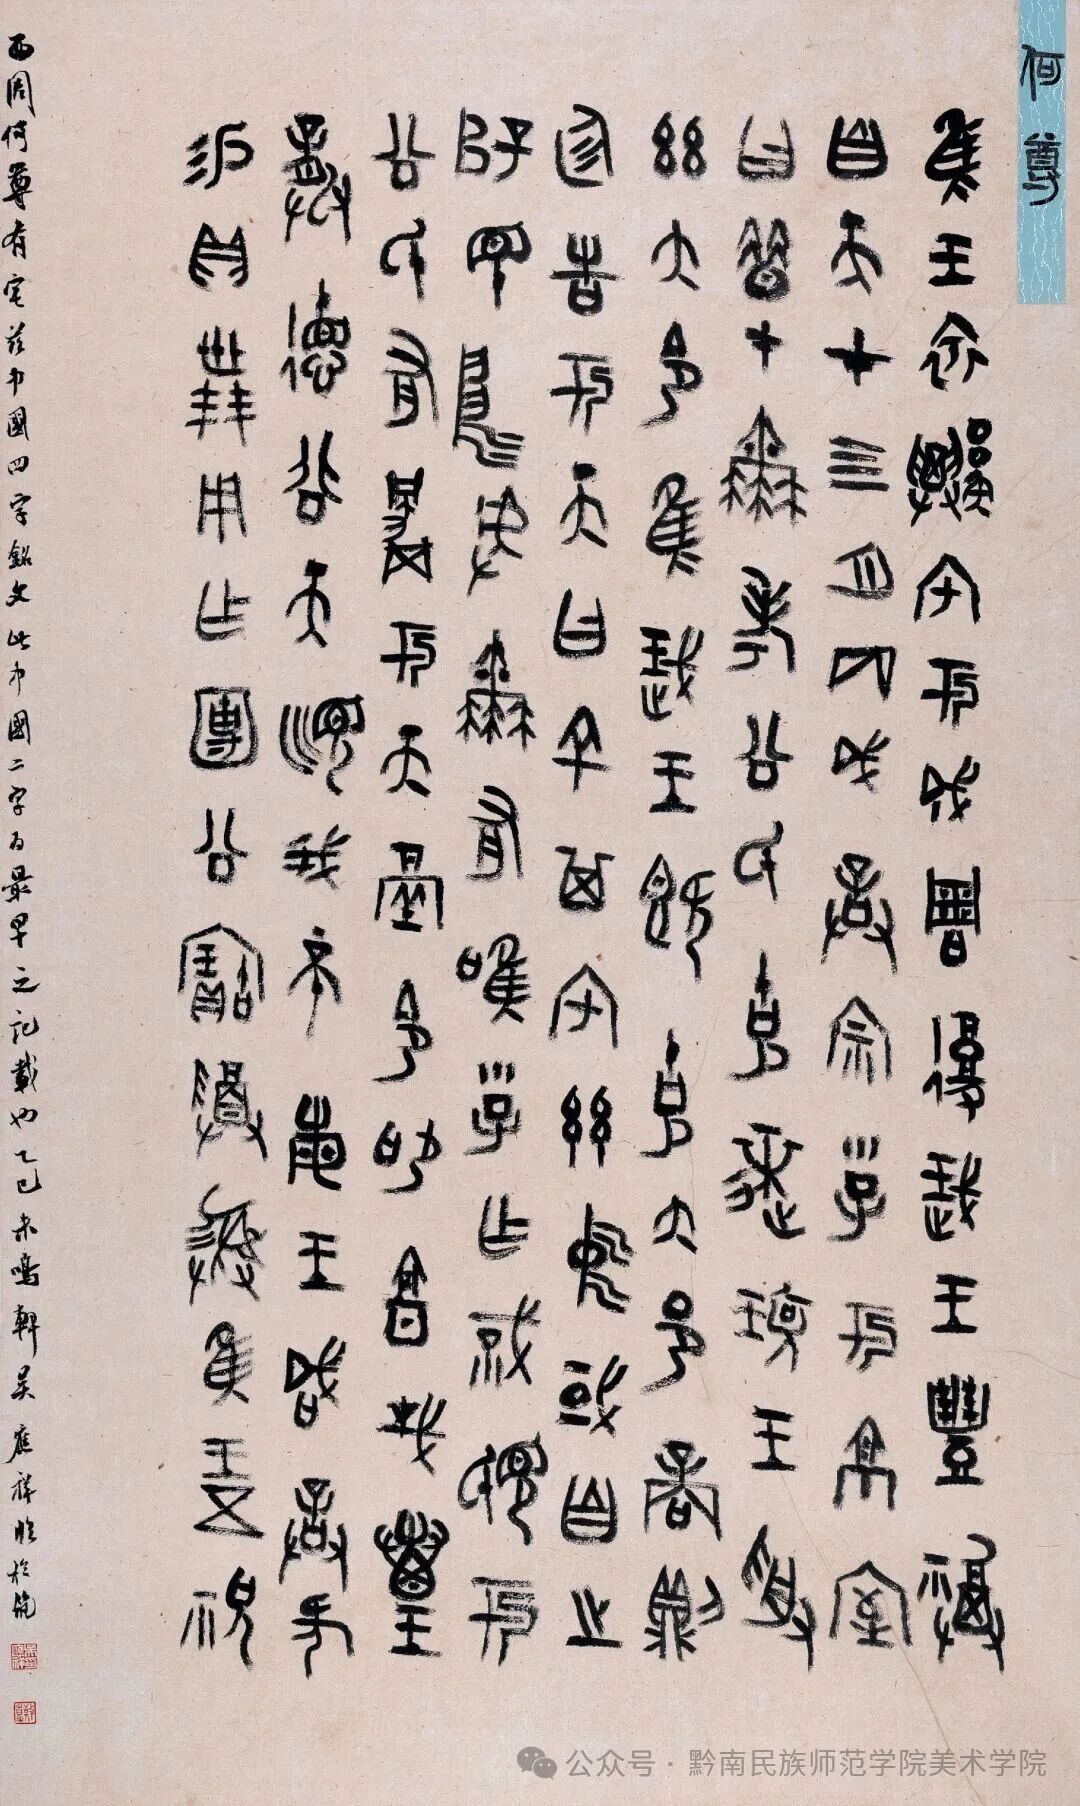 何尊
隹王初遷宅于成周復珷王豐福
自天才四月丙戌誥宗小子于京室
曰昔才爾考公氏克逨玟王肆
茲大令隹珷王既克大邑商則
廷告于天曰余其宅茲中或自之
辥民烏虖爾有唯小子亡戠視于
公氏有爵于天徹令敬享哉叀王
龏德谷天順我不敏王咸誥何易
貝卅朋用乍公寶尊彝隹王五祀
西周何尊有宅茲中國四字銘文此中國二字為最早之記載也乙巳未鳴軒吳應祥臨於筑
公众号·黔南民族师范学院美术学院